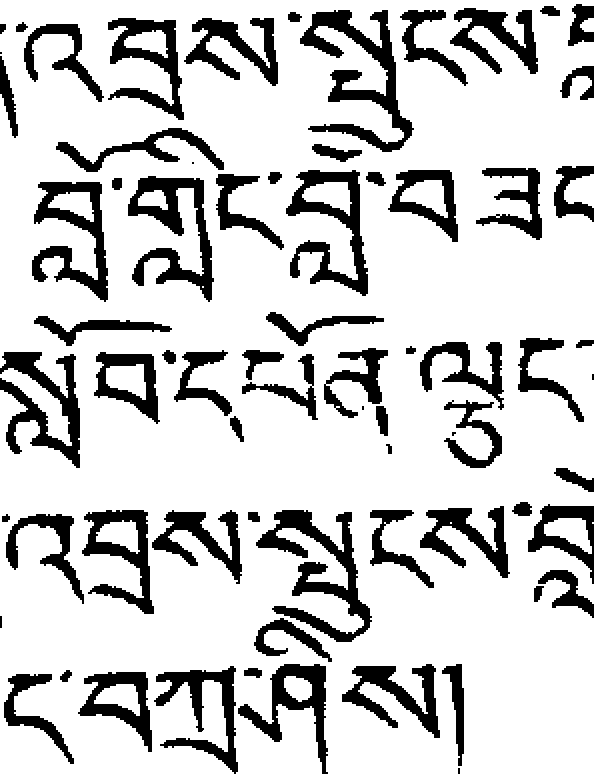 །འབྲས་སྤུངས་
བློ་གླིང་བློ་བཟང
སློབ་དཔོན་ལྕང་
་འབྲས་སྤུངས་བློ
ང་བཀྲ་ཤིས།